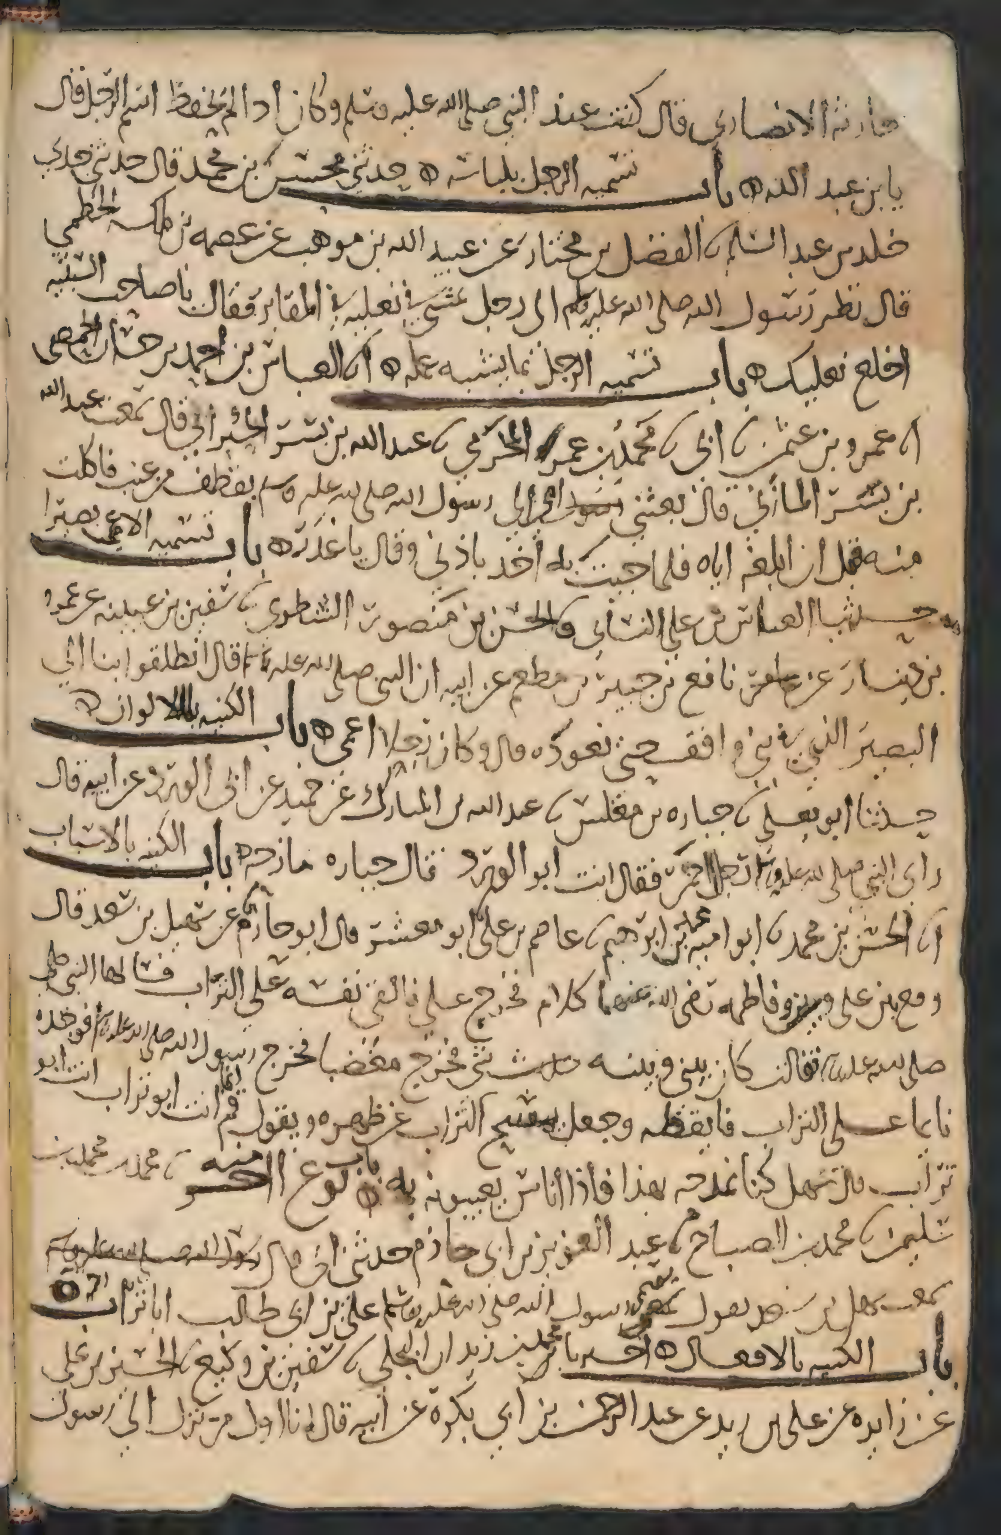 حارثة الانصاري قال كنت عند النبي صلى الله عليه وسلم وكان اذا لم يحفظ اسم الرجل قال
يا بن عبد الله ه باب تسميه الرجل بلباسه ه حدثني محسن بن محمد قال حدثني جدي
خلد بن عبد السلم ثنا الفضل بن مختار عن عبيد الله بن موهب عن عصمه بن ملك الخطمي
قال نظر رسول الله صلى الله عليه وسلم الى رجل يمشي في نعليه في المقابر فقال يا صاحب السبتيه
اخلع نعليك ه باب تسميه الرجل بما يشبه عمله ه انا العباس بن احمد بن حسان الحمصي
انا عمرو بن عثمن ثنا ابي ثنا محمد بن عمر المحرمي ثنا عبد الله بن بسر الحبراني قال سمعت عبد الله
بن بسر المازني قال بعثتني امي الى رسول الله صلى الله عليه وسلم بقطف من عنب فاكلت
منه قبل ان ابلغه اياه فلما جيت به اخذ باذني وقال يا غدر ه باب تسميه الاعمى بصيرا
حدثنا العباس بن علي النساي والحسن بن منصور الشطوي ثنا سفين بن عيينه عن عمرو
بن دينار عن نافع بن جبير بن مطعم عن ابيه ان النبي صلى الله عليه وسلم قال انطلقوا بنا الى
البصير الذي في بني واقف حتى نعوده قال وكان رجلا اعمى ه باب الكنيه بالالوان ه
حدثنا ابو يعلى ثنا جباره بن مغلس ثنا عبد الله بن المبارك عن حميد عن ابن ابي الورد عن ابيه قال
راى النبي صلى الله عليه وسلم رجلا احمر فقال انت ابو الورد قال جباره مازحه ه باب الكنيه بالاسباب
انا الحسين بن محمد ثنا ابو اميه محمد بن ابراهيم ثنا عاصم بن علي ثنا ابو معشر قال ابو حازم عن سهل بن سعد قال
وقع بين علي وفاطمه رضى الله عنهما كلام فخرج علي فالقى نفسه على التراب فسالها النبي
صلى الله عليه وسلم فقالت كان بيني وبينه شي فخرج مغضبا فخرج رسول الله صلى الله عليه وسلم فوجده
نايما على التراب فايقظه وجعل يمسح التراب عن ظهره ويقول قم انما انت ابو تراب انت ابو
تراب قال سهل كنا نمدحه بهذا فاذا اناس يعيبونه به ه باب نوع منه ثنا محمد بن محمد بن
سليمن ثنا محمد بن الصباح ثنا عبد العزيز بن ابي حازم حدثني ابي قال
سمعت سهل بن سعد يقول سمى رسول الله صلى الله عليه وسلم علي بن ابي طالب ابا تراب
باب الكنيه بالافعال ه اخبرنا محمد بن زيدان البجلي ثنا سفين بن وكيع ثنا الحسين بن علي
عن زايده عن علي بن زيد عن عبد الرحمن بن ابي بكرة عن ابيه قال انا اول من نزل الى رسول